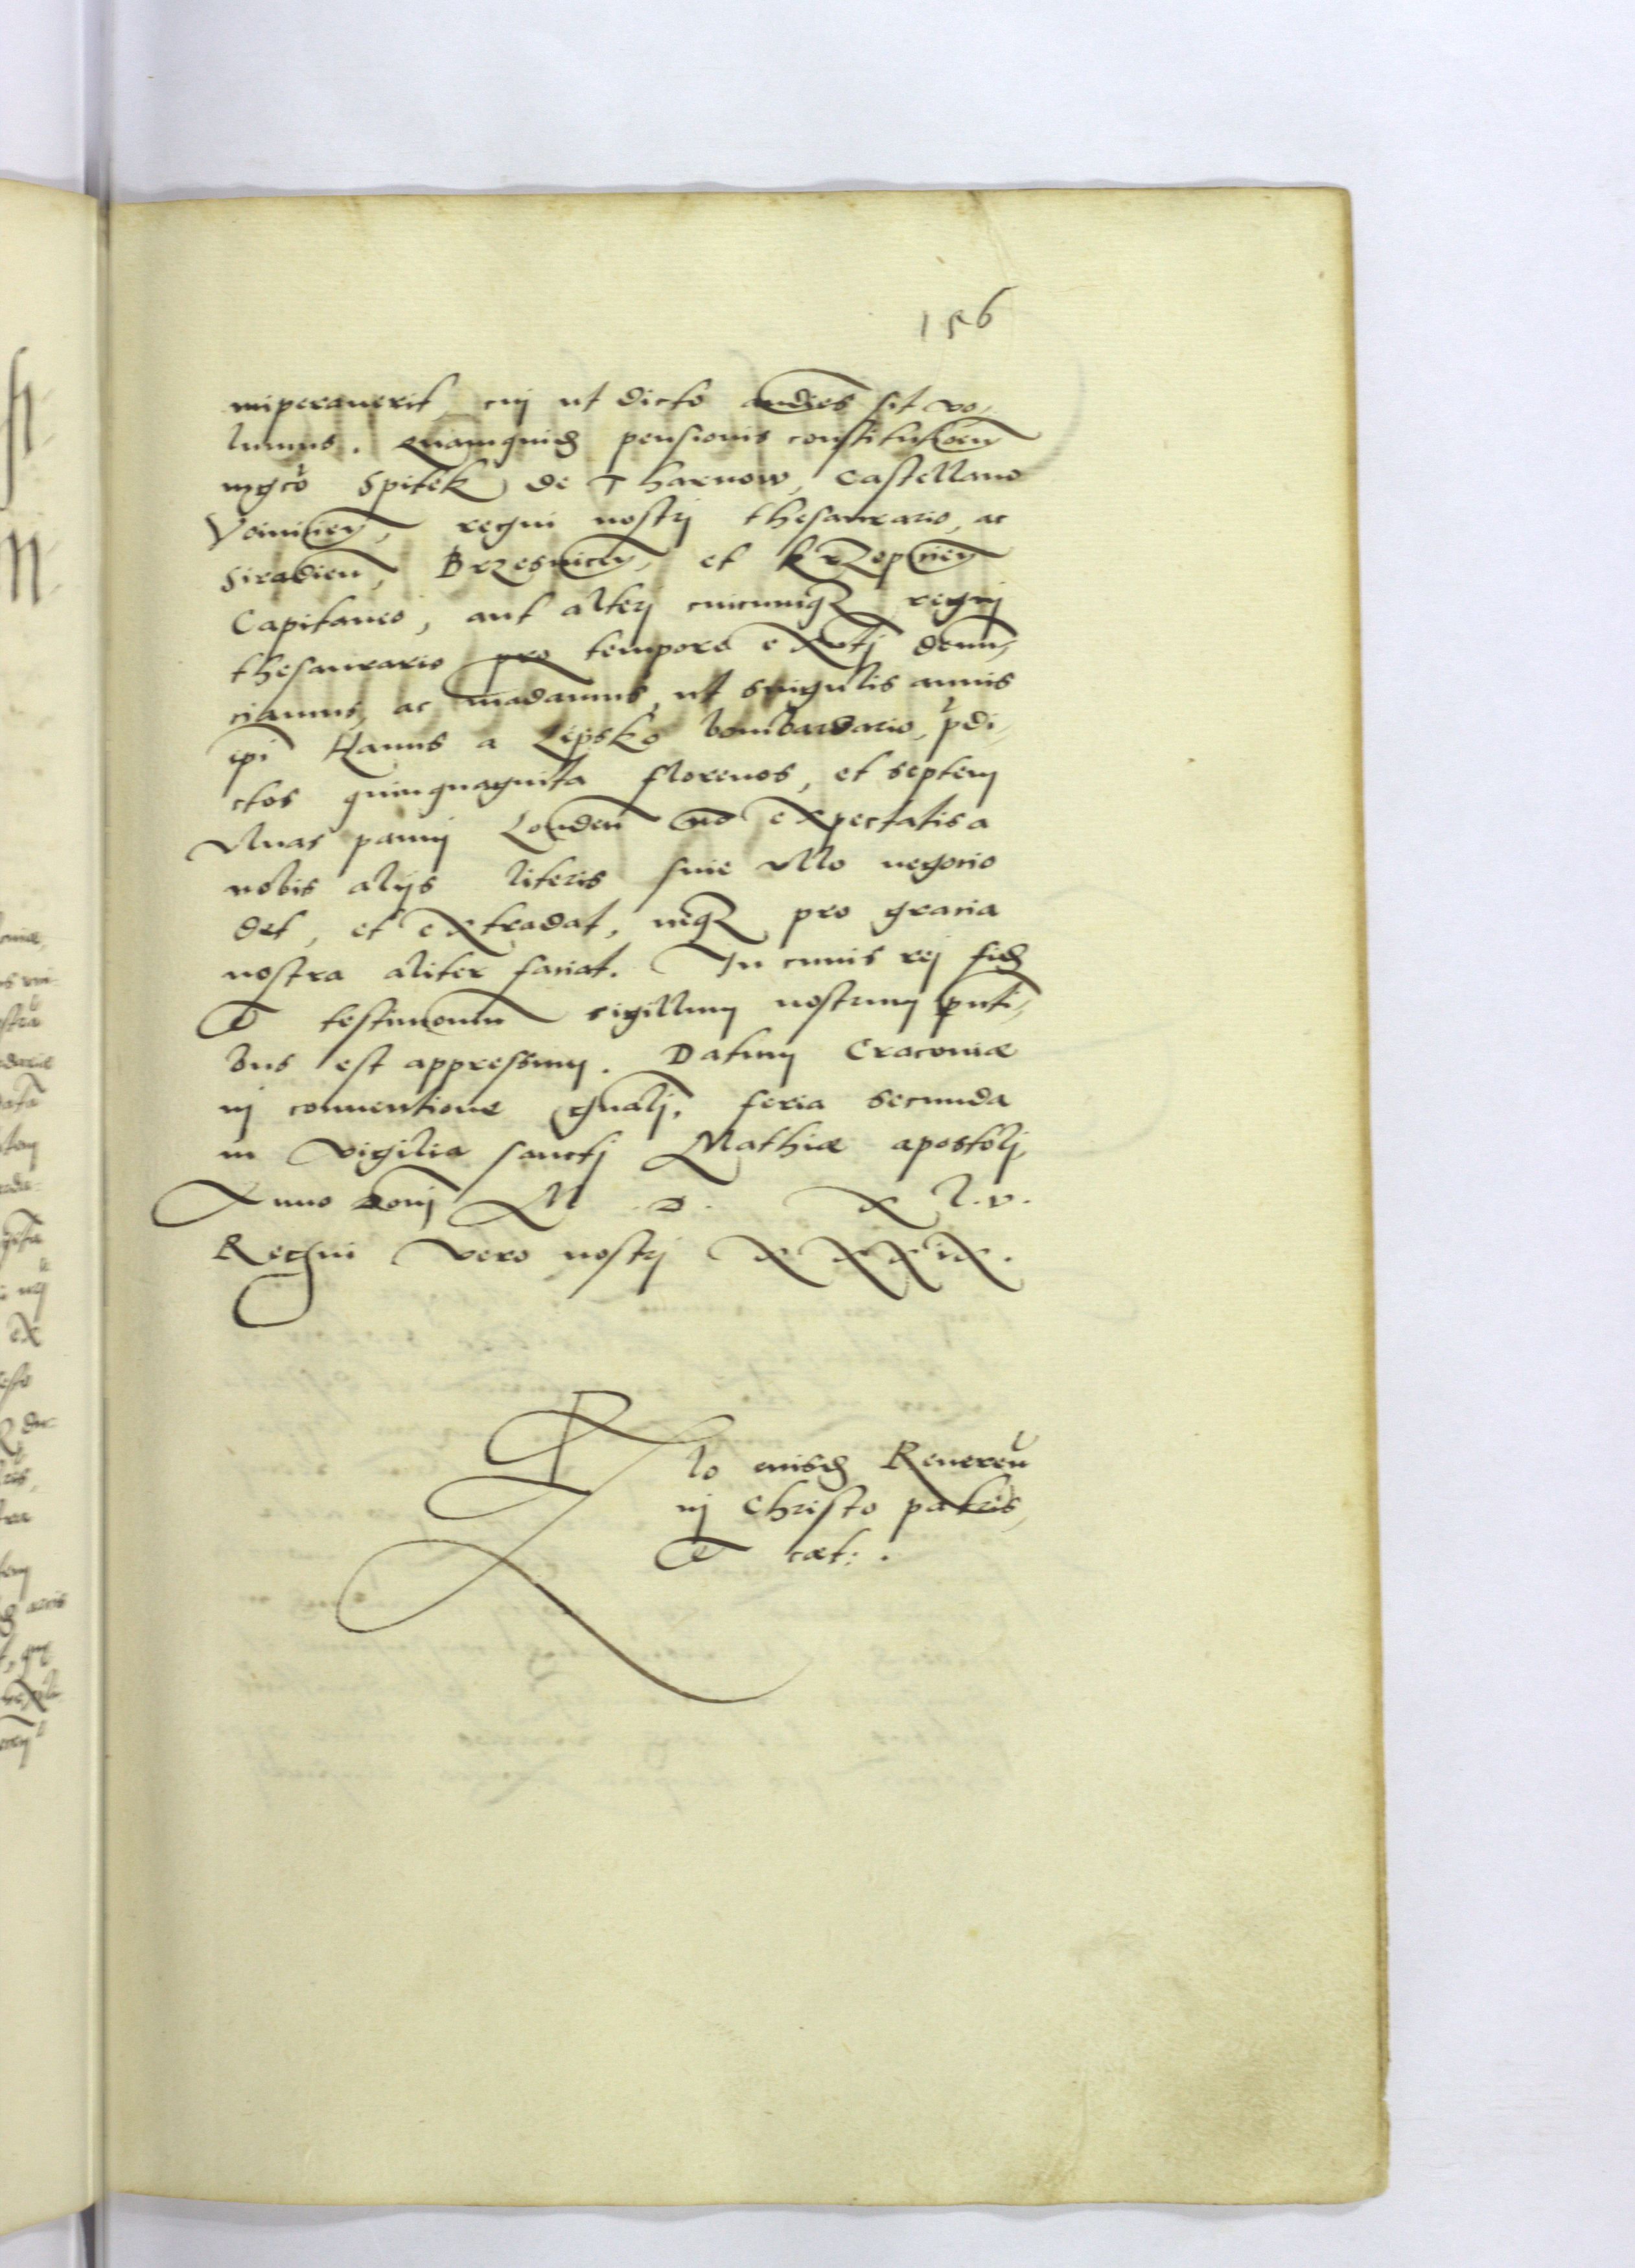 156
imperaverit, cuj ut dicto audies sit vo-
lumus. Quamquid pensionis constitucoem
mgco Spitek de Tharnow, Castellano
Voiniceñ, regni nostrj thesaurario, ac
Siradieñ, Brzesniceñ, et Krzepiceñ
Capitaneo, aut alterj cuicumq regnj
thesaurario pro tempore exntj denun-
ciamus, ac madamus, ut singulis annis
ipi Hanus a Lipsko bombardario, pdi-
ctos quinquaginta florenos, et septem
vlnas pannj Londeñ no expectatis a
nobis alijs literis sine vllo negocio
det, et extradat, neq pro gracia
nostra aliter faciat. In cuius rej fid
et testimonium sigillum nostrum pnti-
bus est appressum. Datum Cracoviæ
in conventione gnalj, feria secunda
in vigilia sanctj Mathiæ apostolj,
Anno Domj M. D. X l. v.
Regni vero nostrj XXXIX.
Rlo eiusd Reveren
in Christo patris,
et cæt:.